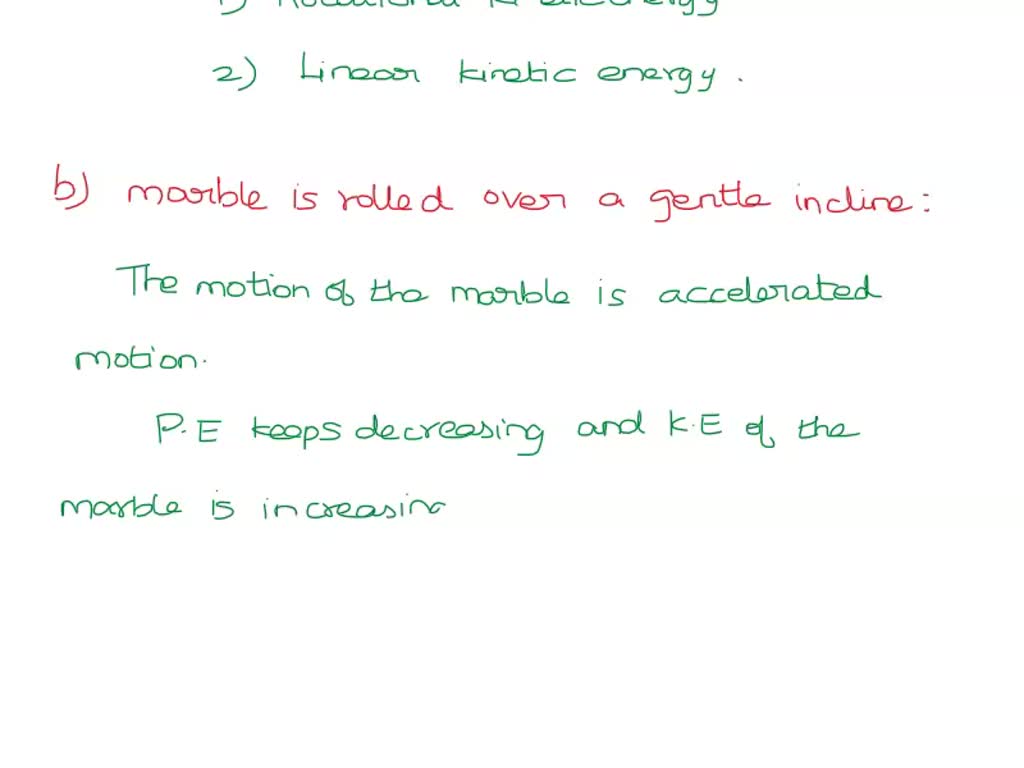 2) Linear kinetic energy.
b) marble is rolled over a gentle incline:
The motion of the marble is accelerated
motion.
P.E keeps decreasing and K.E of the
marble is increasing